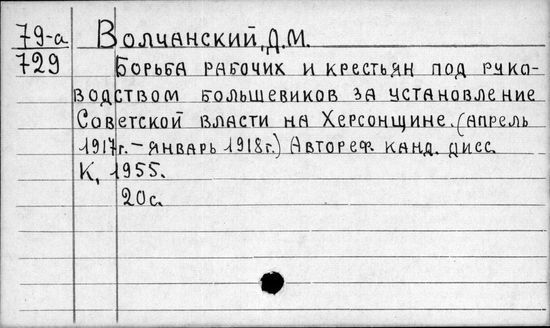 79-а Волчанский, Д.М.
729 Борьба рабочих и крестьян под руко-
водством большевиков за установление
Советской власти на Херсонщине. (апрель
1917г. – январь 1918г.) Автореф. канд. дисс.
К, 1955.
20с.